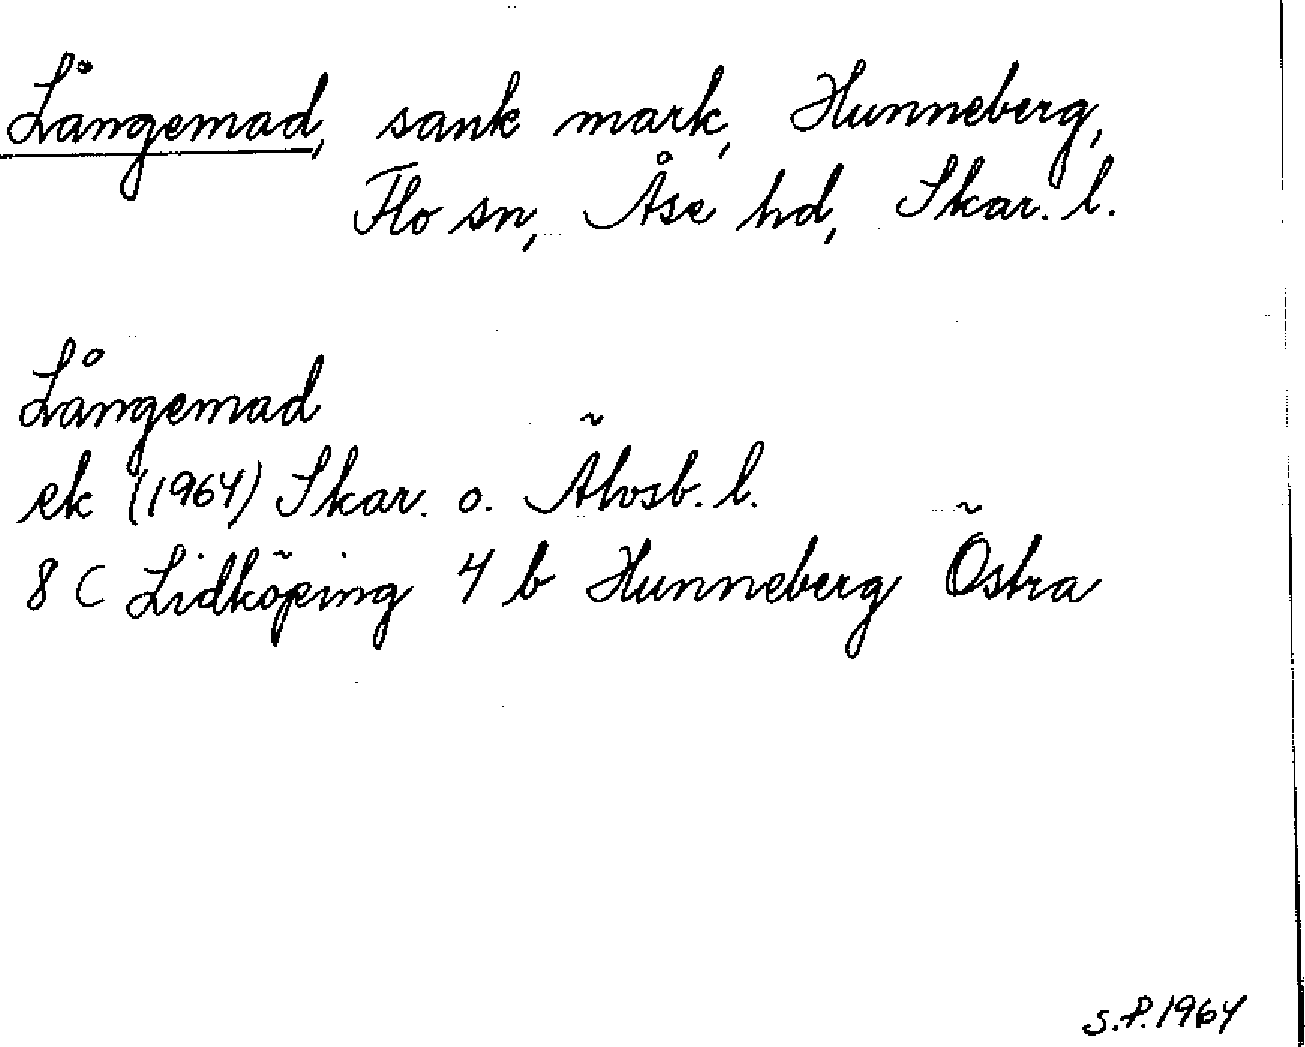 Långemad, sank mark, Hunneberg,
Flo sn, Åse hd, Skar. l.
Långemad
ek (1964) Skar. o. Älvsb. l.
8 C Lidköping 4 b Hunneberg Östra
S.P. 1964